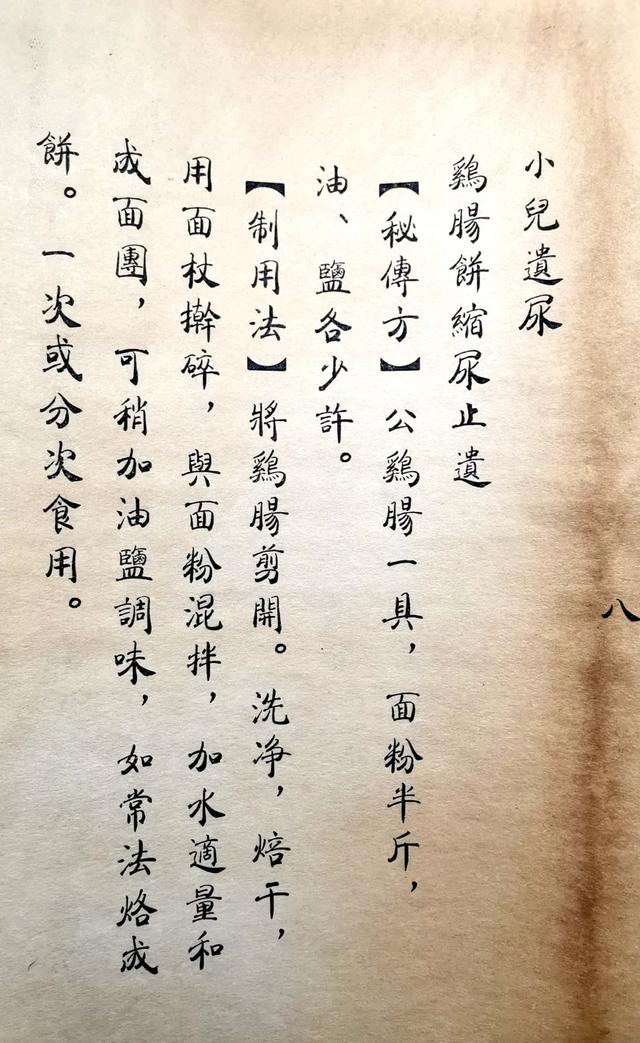 八
小兒遺尿
鷄腸餅縮尿止遺
【秘傳方】公鷄腸一具，面粉半斤，
油、鹽各少許。
【制用法】將鷄腸剪開。洗净，焙干，
用面杖擀碎，與面粉混拌，加水適量和
成面團，可稍加油鹽調味，如常法烙成
餅。一次或分次食用。